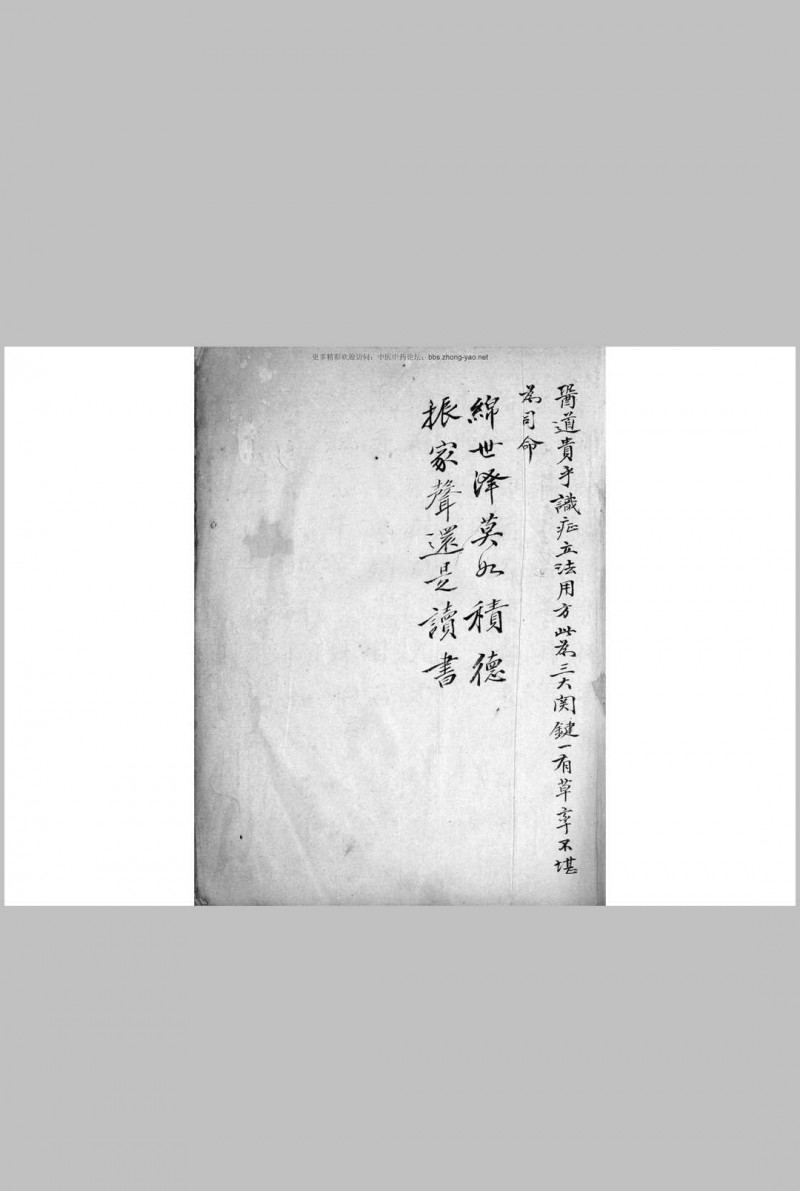 更多精彩欢迎访问：中医中药论坛：bbs.zhong-yao.net
醫道貴乎識症立法用方此為三大関鍵一有草率不堪
為司命
綿世澤莫如積德
振家聲還是讀書